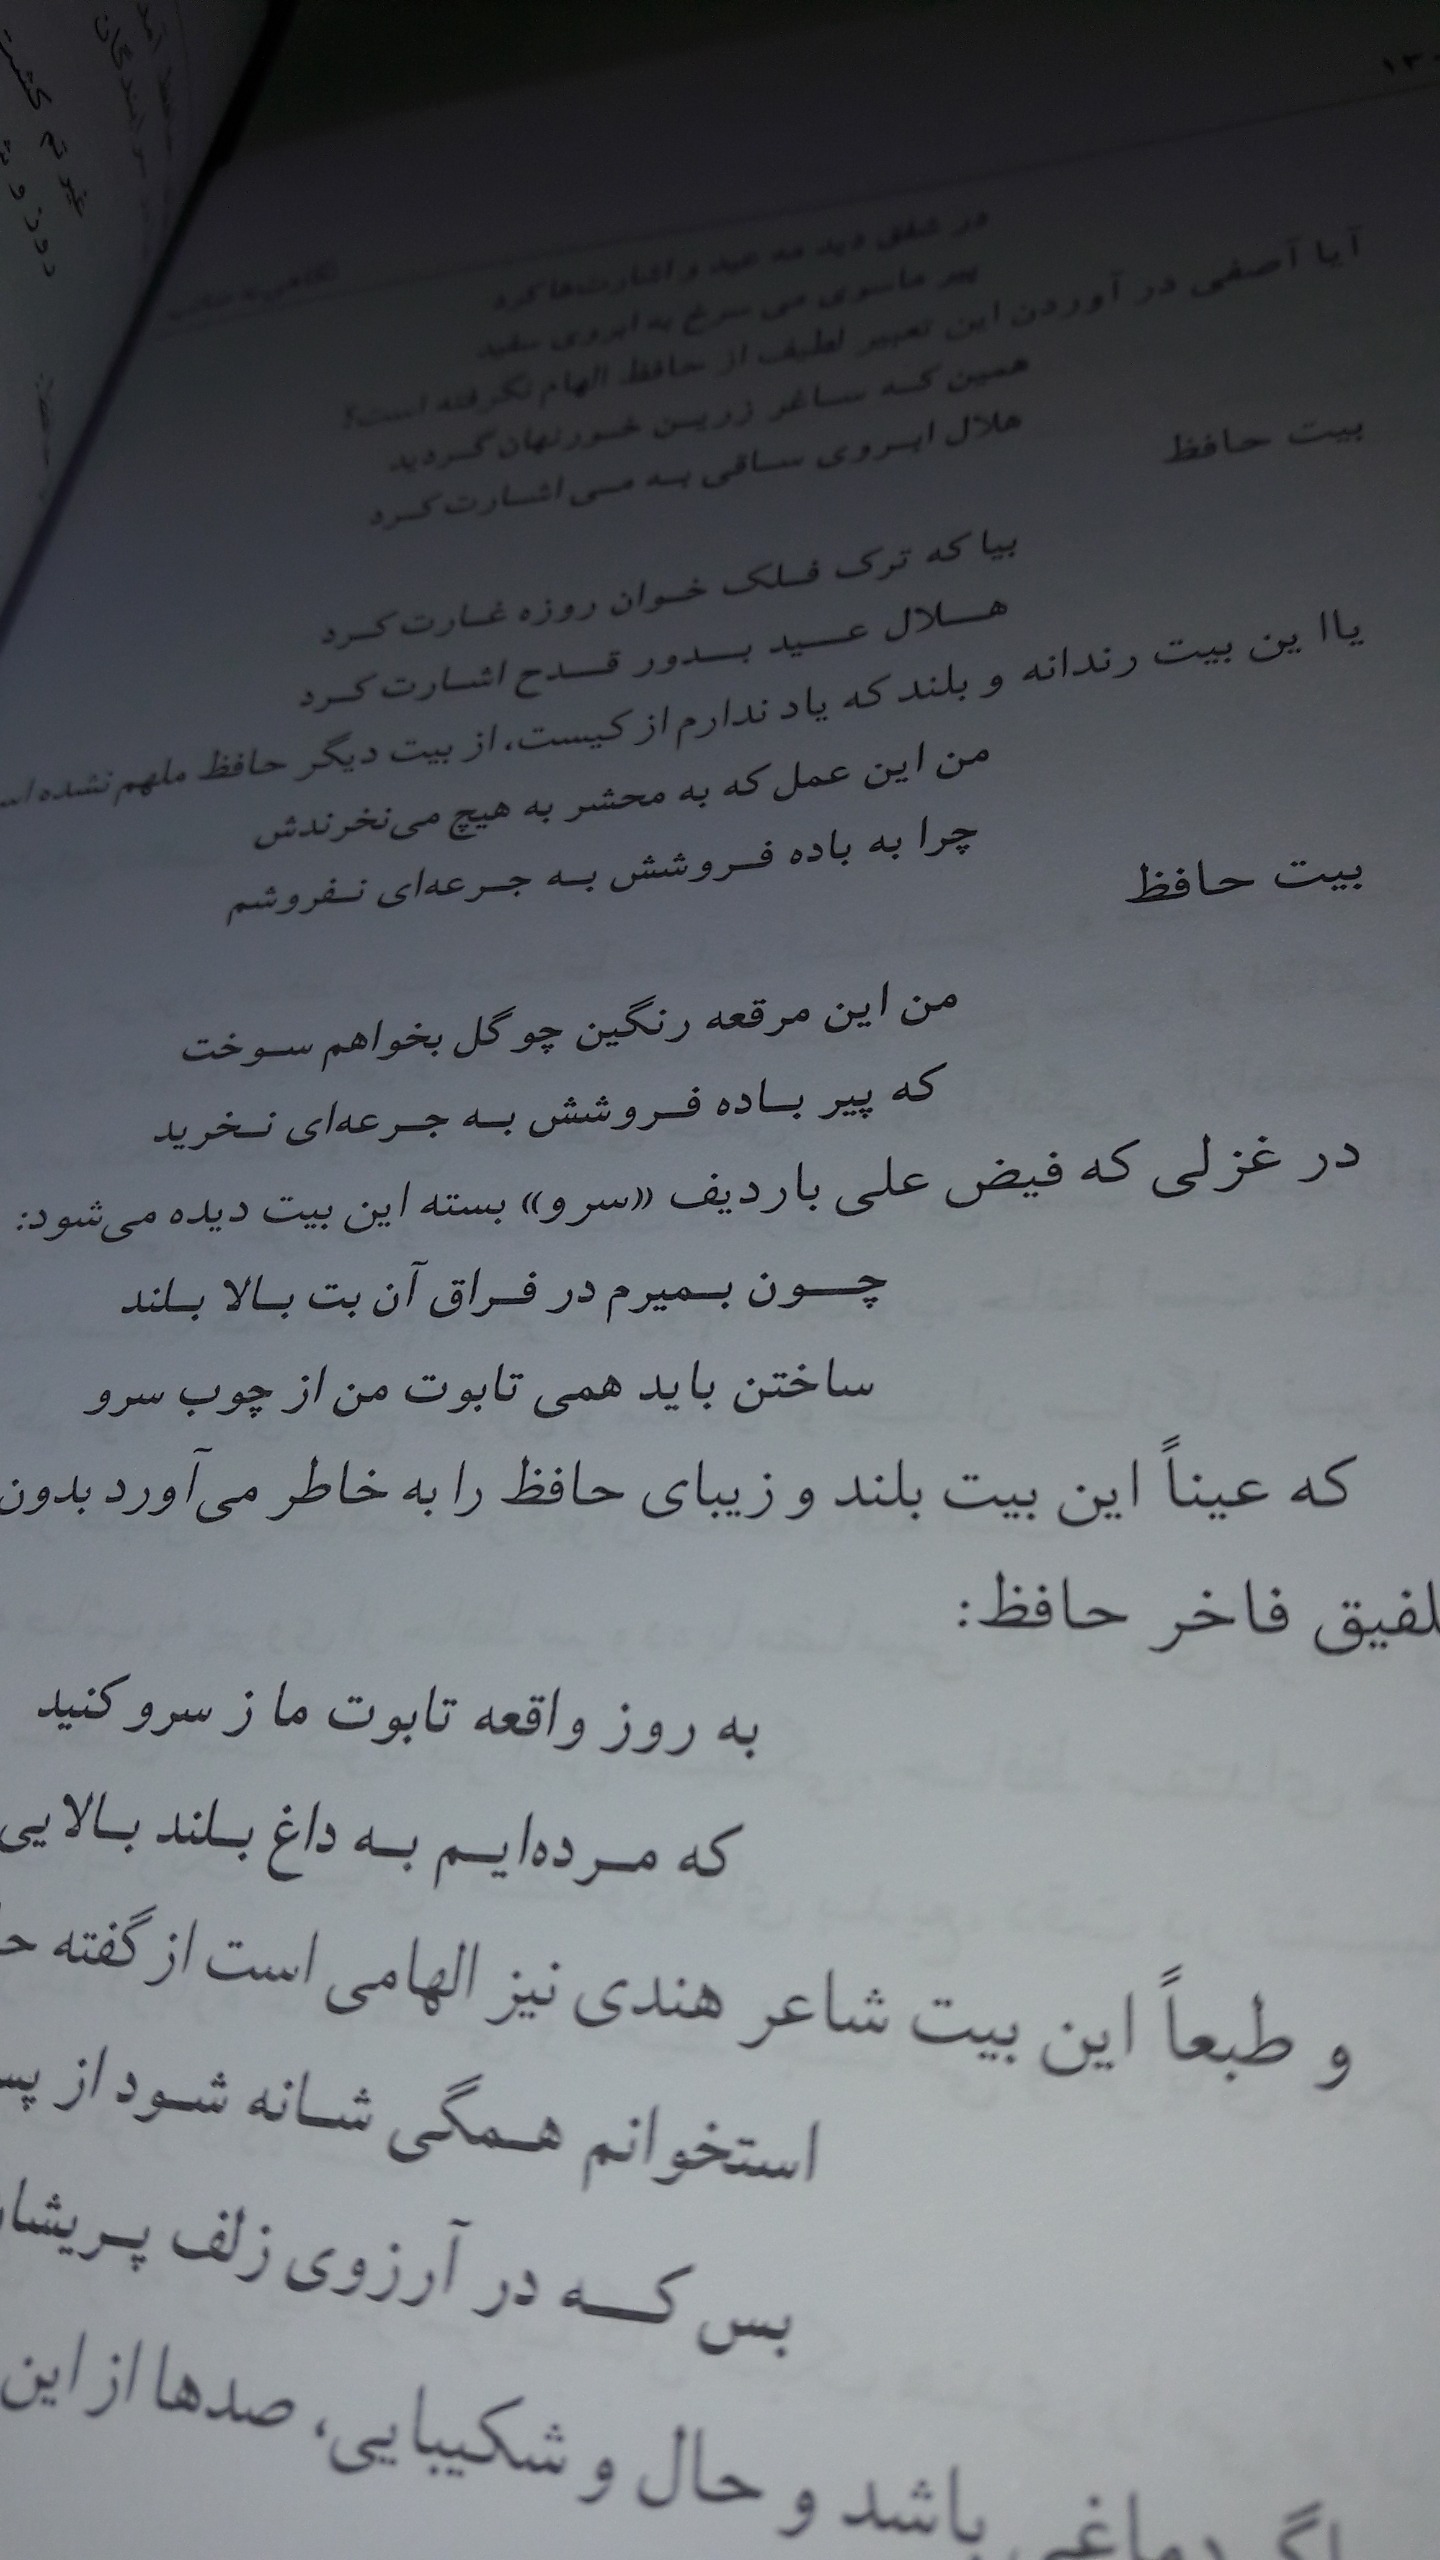 در شفق دید مه عید و اشارت‌ها کرد
پیر ما سوی می سرخ به ابروی سفید
آیا آصفی در آوردن این تعبیر لطیف از حافظ الهام نگرفته است؟
همین که ساغر زرین خور نهان گردید
هلال ابروی ساقی به می اشارت کرد
بیت حافظ
بیا که ترک فلک خوان روزه غارت کرد
هلال عید بدور قدح اشارت کرد
یاا ین بیت رندانه و بلند که یاد ندارم از کیست، از بیت دیگر حافظ ملهم نشده
من این عمل که به محشر به هیچ می‌نخرندش
چرا به باده فروشش به جرعه‌ای نفروشم
بیت حافظ
من این مرقعه رنگین چو گل بخواهم سوخت
که پیر باده فروشش به جرعه‌ای نخرید
در غزلی که فیض علی باردیف «سرو» بسته این بیت دیده می‌شود:
چون بمیرم در فراق آن بت بالا بلند
ساختن باید همی تابوت من از چوب سرو
که عیناً این بیت بلند و زیبای حافظ را به خاطر می‌آورد بدون
فاخر حافظ:
به روز واقعه تابوت ما ز سرو کنید
که مرده‌ایم به داغ بلند بالایی
و طبعاً این بیت شاعر هندی نیز الهامی است از گفته
استخوانم همگی شانه شود از
بس که در آرزوی زلف
باشد و حال و شکیبایی، صدها از این